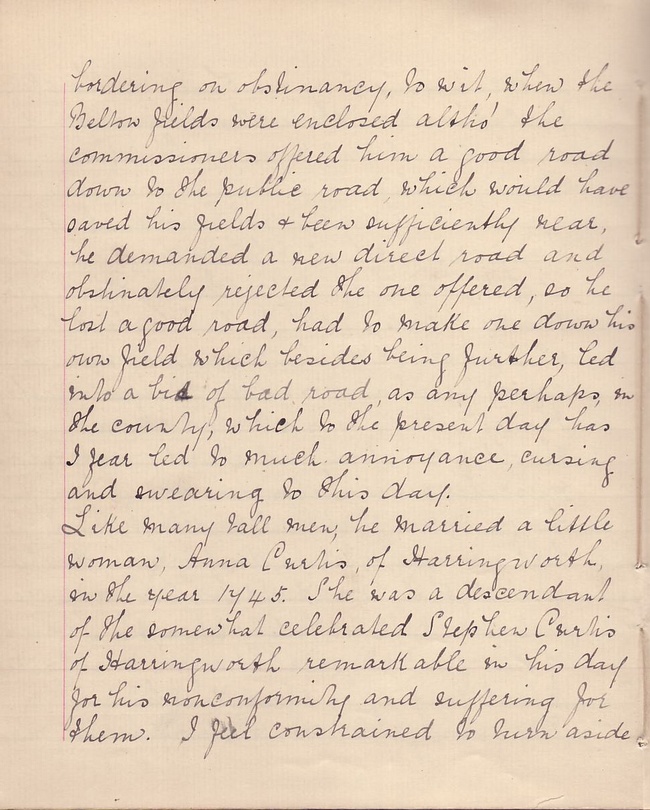 bordering on obstinancy, to wit, when the
Belton fields were enclosed altho' the
commissioners offered him a good road
down to the public road, which would have
saved his fields & been sufficiently near,
he demanded a new direct road and
obstinately rejected the one offered, so he
lost a good road, had to make one down his
own field which besides being further, led
into a bit of bad road, as any perhaps, in
the county, which to the present day has
I fear led to much annoyance, cursing
and swearing to this day.
Like many tall men, he married a little
woman, Anna Curtis, of Harringworth,
in the year 1745. She was a descendant
of the somewhat celebrated Stephen Curtis
of Harringworth remarkable in his day
for his nonconformity and suffering for
them. I feel constrained to turn aside